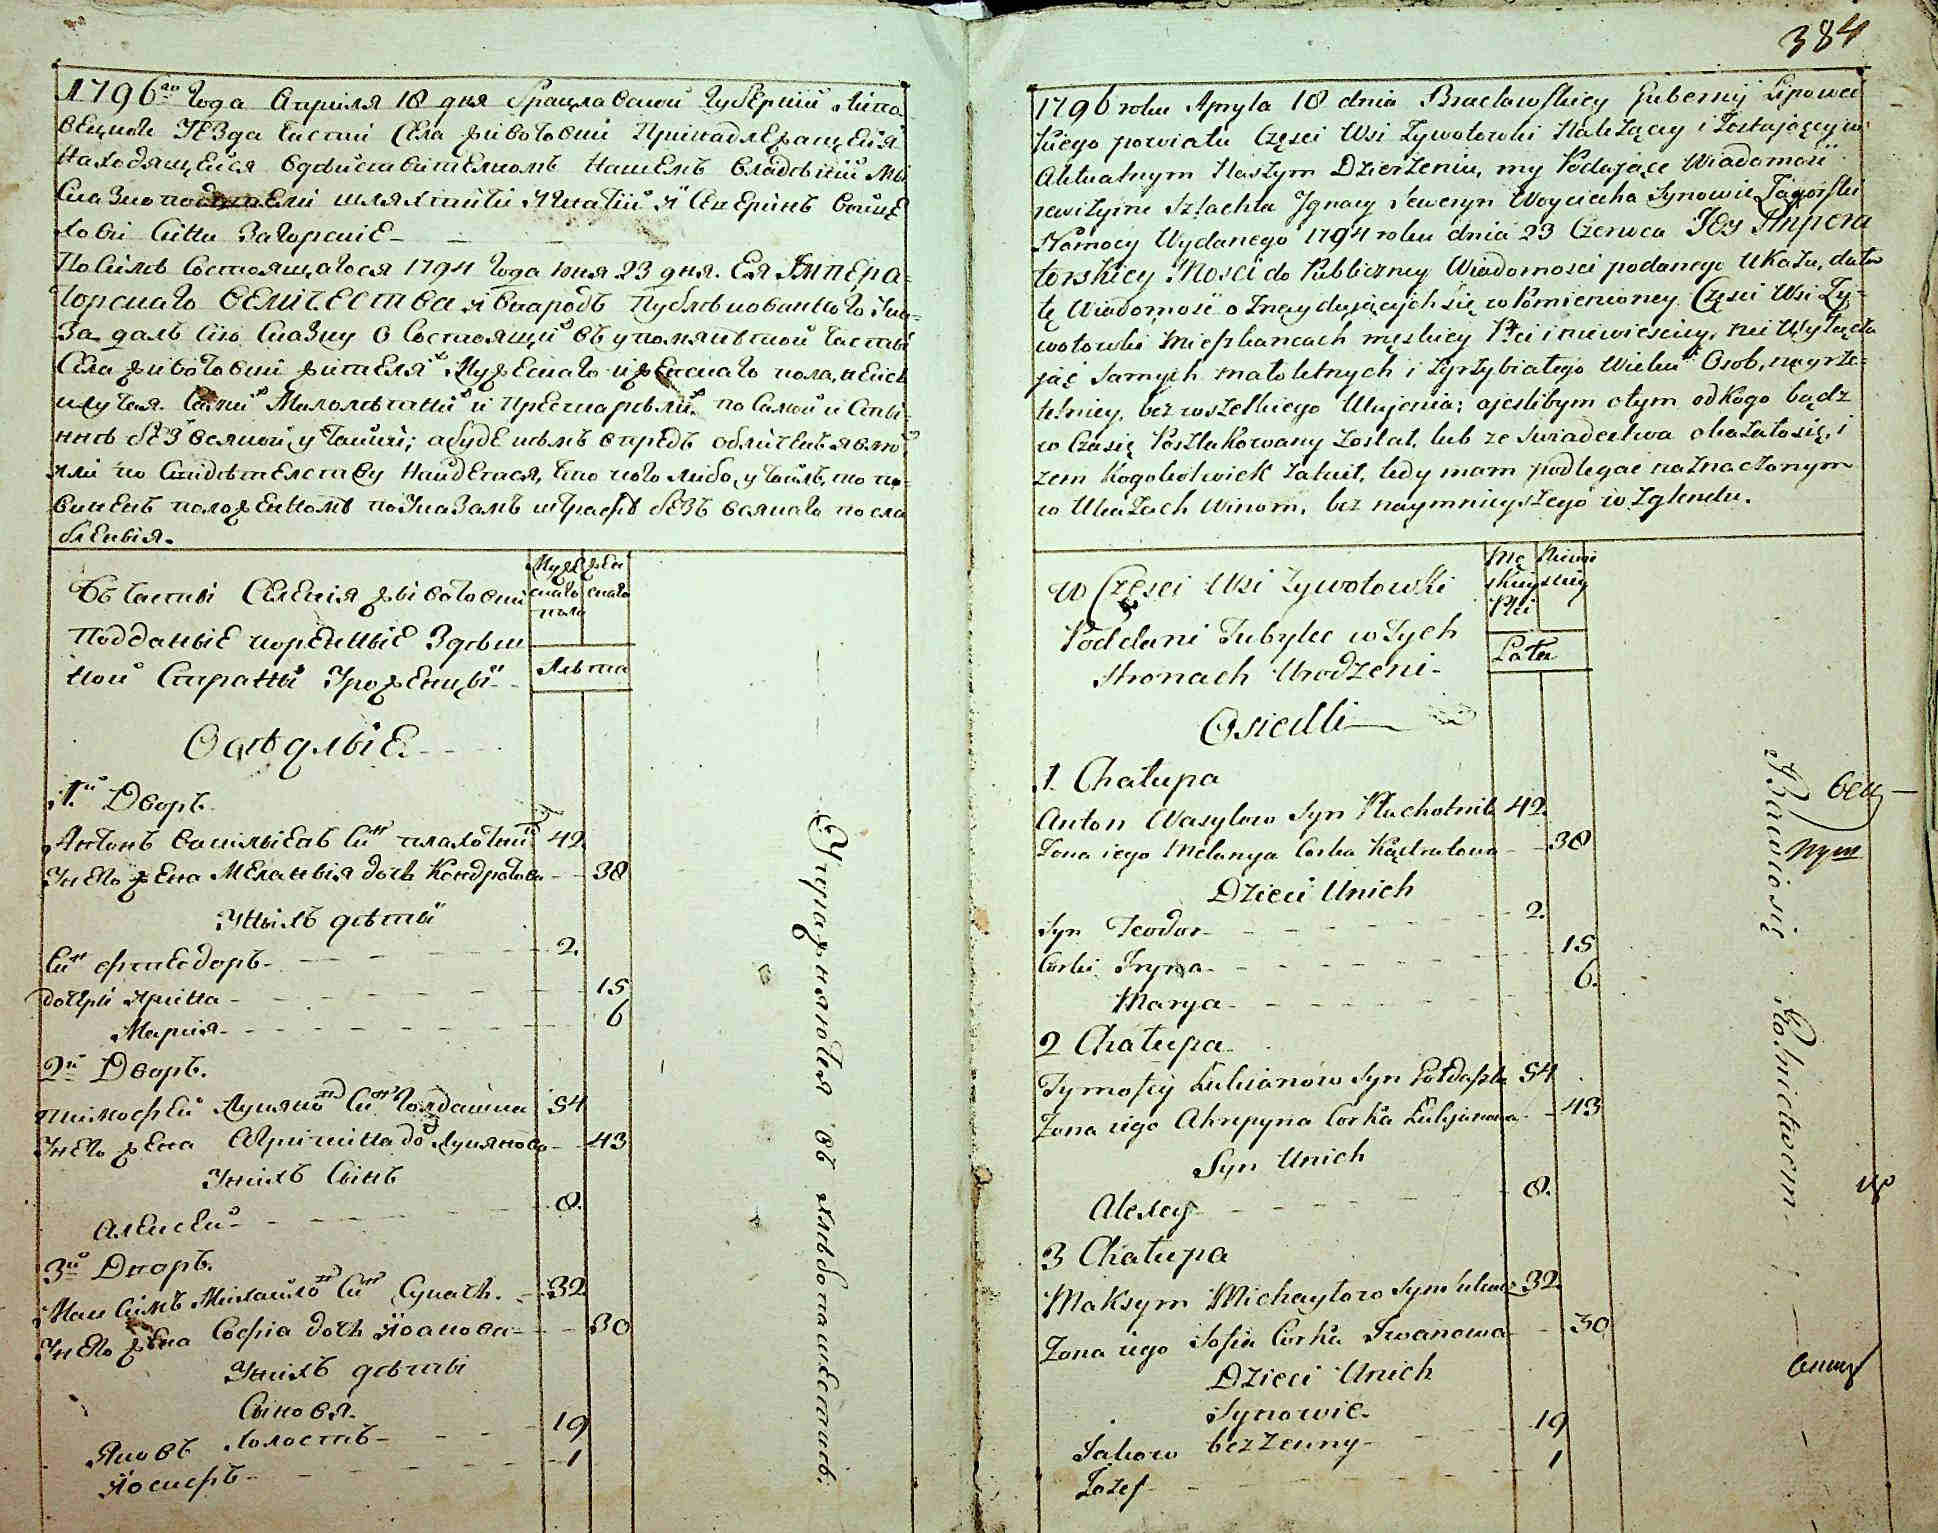 1796го года Априля 18 дня Брацлавской губернии Липо
вецкой уезда части села Животовки принадлежащей и
находящейся вдействительномъ нашемъ владении мы
шляхтичи Игнатий и Северинъ войце
ховы сины Загорские
По силе состоящагося 1794 года июня 23 дня. Ея Импера-
торскаго величества и внародъ публикованного ука-
за даль сию сказку о состоящий въ упомянутой части
села Животовки жителяхъ мужескаго и женскаго пола, неиск
лучая самихъ малолетний и престарелий, по самой истин-
ны безъ всякой утайки; а буде кемъ впредь обличенъ явлю
или по свидетелству найдется, что кого либо утаилъ, то по-
виненъ положеномъ по указамъ штрафе безъ всякаго посла
бления.
Въ части селения Животовки
Подданые коренные здеш
ной страны уроженцы
Мужескаго пола
женскаго
Лѣта
Оседлые.
1й Дворъ
Антонъ Васильевъ синъ Плахотникъ 42
У него жена Мелания дочь Кондратова 38
У нихъ дети
Синъ Фтеодоръ 2.
Дочери Ирина 15
Мария 6
2й Дворъ.
Тимофей Лукяновъ синъ Голдашка 54
У него жена Агрипина дочь Лукянова 43
У нихъ синъ
Алексей 8.
3й Дворъ.
Максимъ Михайловъ синъ Сукачъ. 32
У него жена София дочь Иванова 30
У нихъ дети
Синовя.
Яковъ холостъ 19
Иосифъ 1
Упражняются въ хлебопашестве.
384
1796 roku Apryla 18 dnia Bracławskiey Gubernij Lipowec
kiego powiatu Częsci Wsi Zywotowki Należący i Zostaiącey w
Aktualnym Naszym Dzierżeniu, my Podaiące Wiadomość
rewizyine Szlachta Jgnacy Seweryn Woyciecha Synowie Zagorski
Z Mocy Wydanego 1794 roku dnia 23 Czerwca Jey Jmpera
torskiey Mosci do Publiczney Wiadomosci podanego Ukazu, dała
tę Wiadomość o znayduiących się w Pomienioney Częsci Wsi Zy-
wotowki Mieszkancach męskiey Płci i niewiesciey, nie Wyłącza
jąc samych małoletnych i zgrzybiałego Wieku Osob, nayrze-
telniey, bez wszelkiego Utajenia; a jeslibym o tym od kogo bądz
w Czasie Poszlakowany został, lub ze swiadectwa okazało się, i
żem kogokolwiek zataił, tedy mam podlegać naznaczonym
w Ukazach Winom, bez naymnieyszego wzglendu.
w Częsci Wsi Zywotowki
Poddani Tubylce w Tych
stronach Urodzeni
Mę skiey Płci
Niewi esciey
Lata
Osiedli
1. Chałupa
Anton Wasylow Syn Płachotnik 42.
Zona iego Melanya Corka Kondratowa 38
Dzieci Unich
Syn Teodor 2.
Corki Jryna 15
Marya 6.
2 Chałupa
Tymofiy Łukianow Syn Hołdaszka 54
Zona iego Ahrypyna Corka Łukjanowa 43
Syn Unich
Alexey 8.
3 Chałupa
Maksym Michayłow Syn Sukacz 32.
Zona iego Sofia Corka Jwanowa 30
Dzieci Unich
Synowie
Jakow bezzenny 19
Jozef 1
Bawią się Rolnictwem